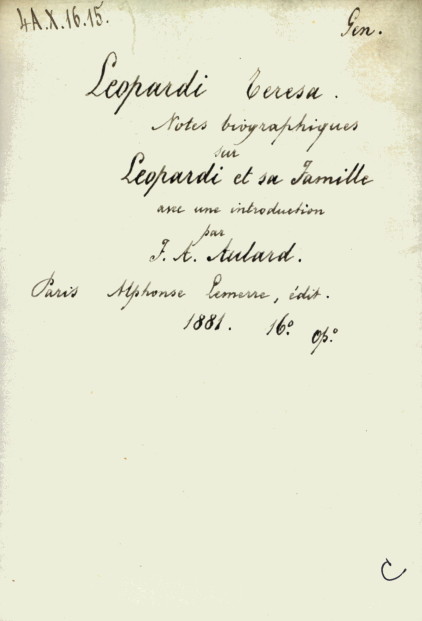 4A.X.16.15.
Gen.
Leopardi Teresa.
Notes biographiques
sur
Leopardi et sa Famille
avec une introduction
par
F. A. Aulard.
Paris Alphonse Lemerre, édit.
1881. 16º. op.º
C